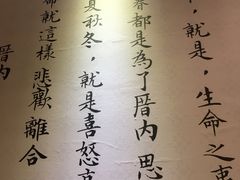 ，就是，生命之
春都是為了厝內 思
夏秋冬，就是喜怒哀
就這樣 悲歡離合
厝內